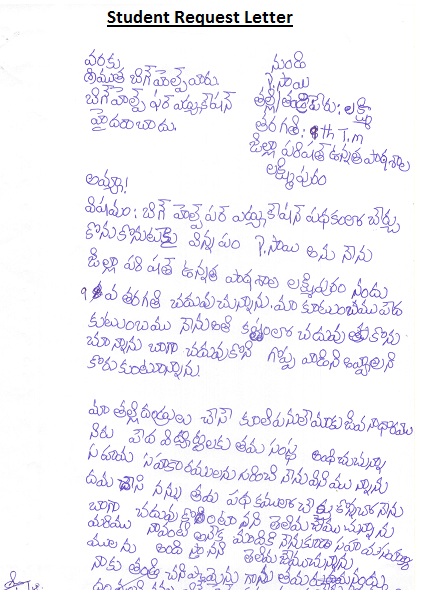 Student Request Letter
వరకు
శ్రీయుత బిగ్ హెల్ప్ వారు
బిగ్ హెల్ప్ ఫర్ ఎడ్యుకేషన్
హైదరాబాదు.
నుండి
P.సాయి
తల్లి తండ్రి పేరు: లక్ష్మి
తరగతి: 9th T.m
జిల్లా పరిషత్ ఉన్నత పాఠశాల
లక్ష్మీపురం
అయ్యా!
విషయం: బిగ్ హెల్ప్ ఫర్ ఎడ్యుకేషన్ పథకంలో చేర్చు
కొనుటకై విన్నపం P.సాయి అను నేను
జిల్లా పరిషత్ ఉన్నత పాఠశాల లక్ష్మీపురం నందు
9 వ తరగతి చదువుచున్నాను. మా కుటుంబము పేద
కుటుంబము నేను అతి కష్టంలో చదువుకొను
చున్నాను బాగా చదువుకొని గొప్ప వాడిని అవ్వాలని
కోరుకుంటున్నాను.
మా తల్లిదండ్రులు చేసే కూలిపనులే మాకు జీవనాధారము
మీరు పేద విద్యార్థులకు తమ సంస్థ అందించుచున్న
సహాయ సహకారములను గురించి నేను విని యున్నాను
నన్ను తమ పథకములో
బాగా చదువు తెలియచేయుచున్నాను
మరియు నావంటి అనేక మందికి నేను కూడా
తెలియచేయుచున్నాను
నాకు తండ్రి